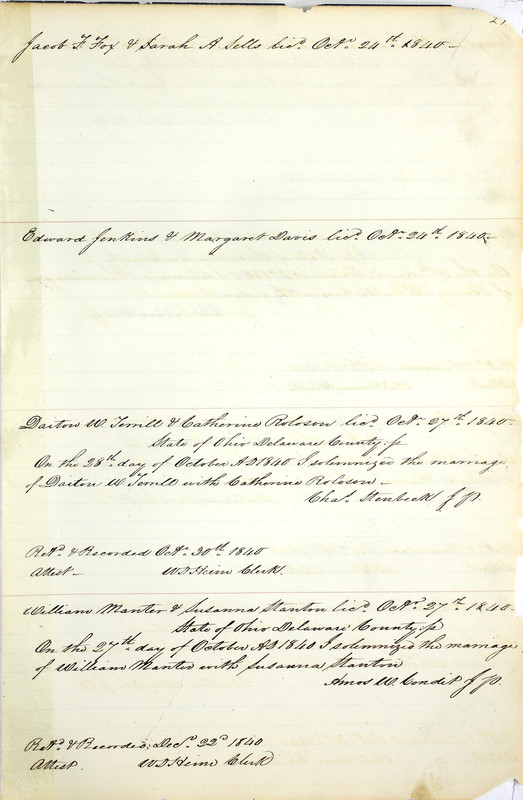 Jacob F. Fox & Sarah A. Sells licd. Octr. 24th. 1840 –
Edward Jenkins & Margaret Davis licd. Octr. 24th. 1840 –
Daiton W. Terrill & Catherine Roloson licd. Octr. 27th. 1840 –
State of Ohio Delaware County: ss
On the 28th. day of October AD 1840 I solemnized the marriage
of Daiton W Terrill with Catherine Roloson –
Chas. Stenbeck J P.
Retd. & Recorded Octr. 30th. 1840
Attest – W D Heim Clerk.
William Manter & Susanna Stanton licd. Octr. 27th. 1840 –
State of Ohio Delaware County: ss
On the 27th. day of October AD 1840 I solemnized the marriage
of William Manter with Susanna Stanton
Amos W. Condit J P.
Retd. & Recorded; Decr. 22d 1840
Attest. W D Heim Clerk